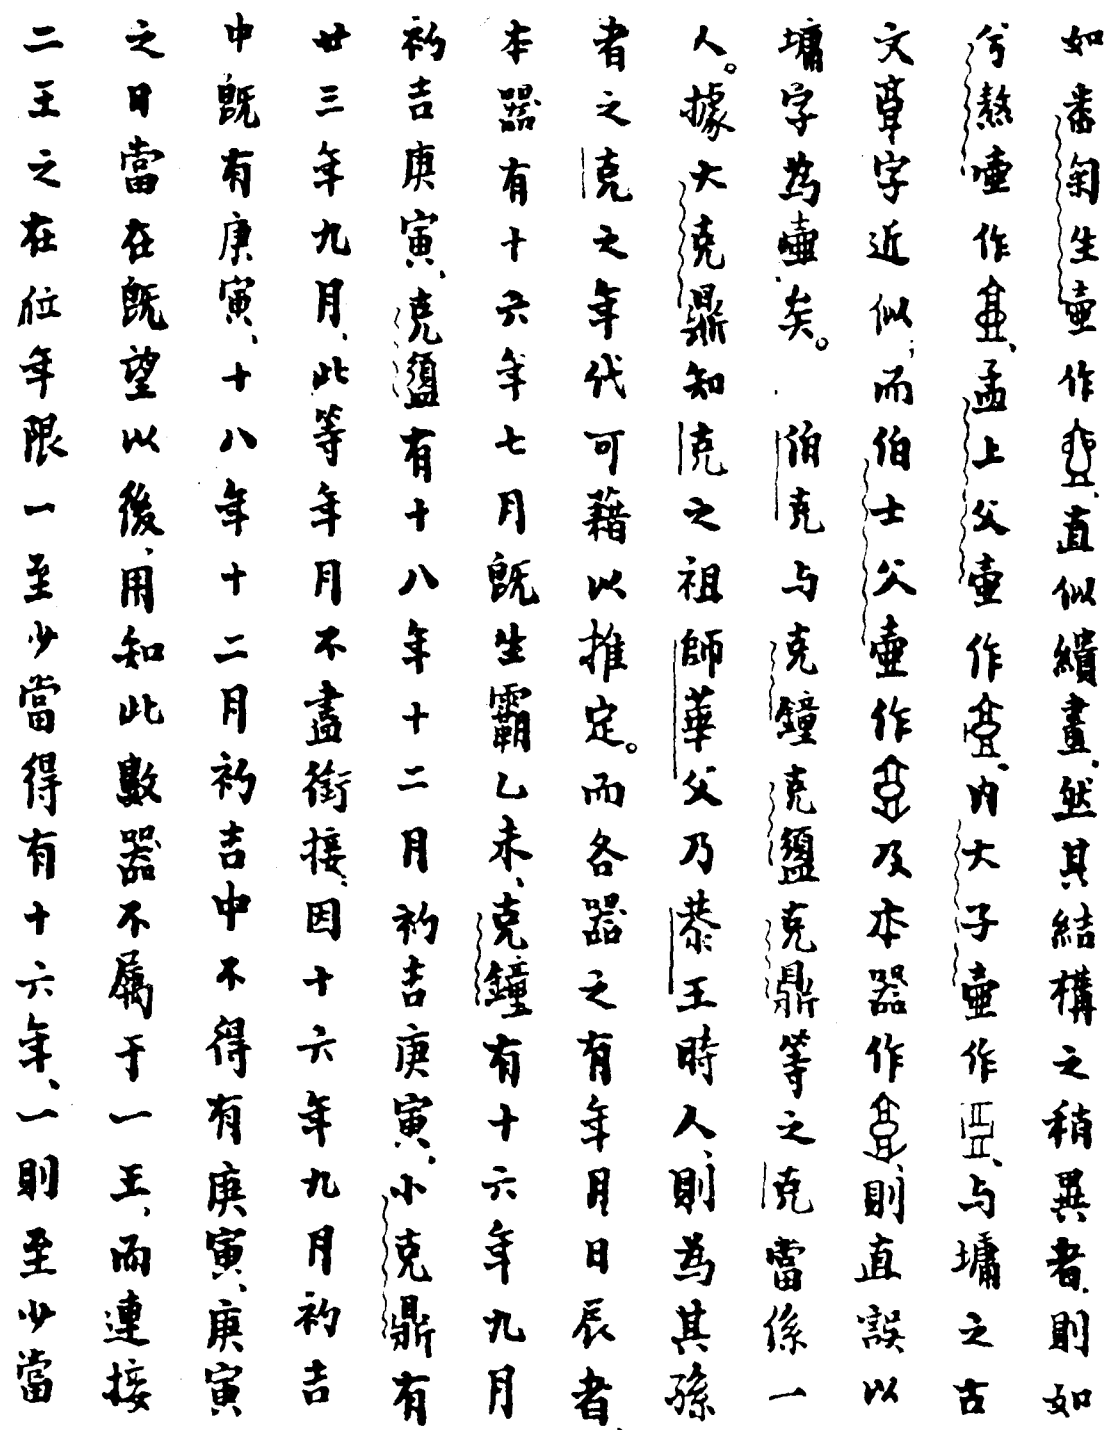 如番匊生壺作，直似繢畫，然其結構之稍異者，則如
兮熬壺作，孟上父壺作，內大子壺作，与墉之古
文𩫏字近似；而伯士父壺作及本器作，則直誤以
墉字為壺矣。　伯克与克鐘克盨克鼎等之克當係一
人。據大克鼎知克之祖師華父乃恭王時人，則為其孫
者之克之年代可藉以推定。而各器之有年月日辰者，
本器有十六年七月既生霸乙未，克鐘有十六年九月
初吉庚寅，克盨有十八年十二月初吉庚寅，小克鼎有
廿三年九月，此等年月不盡銜接，因十六年九月初吉
中既有庚寅，十八年十二月初吉中不得有庚寅，庚寅
之日當在既望以後，用知此數器不屬于一王，而連接
二王之在位年限一至少當得有十六年，一則至少當